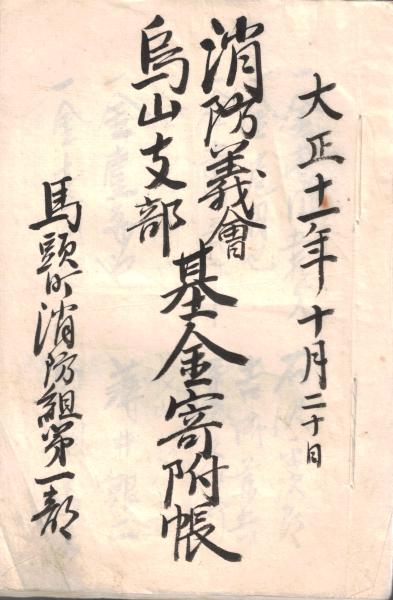 大正十一年十月二十日
消防義會
烏山支部
基金寄附帳
馬頭町消防組第一部